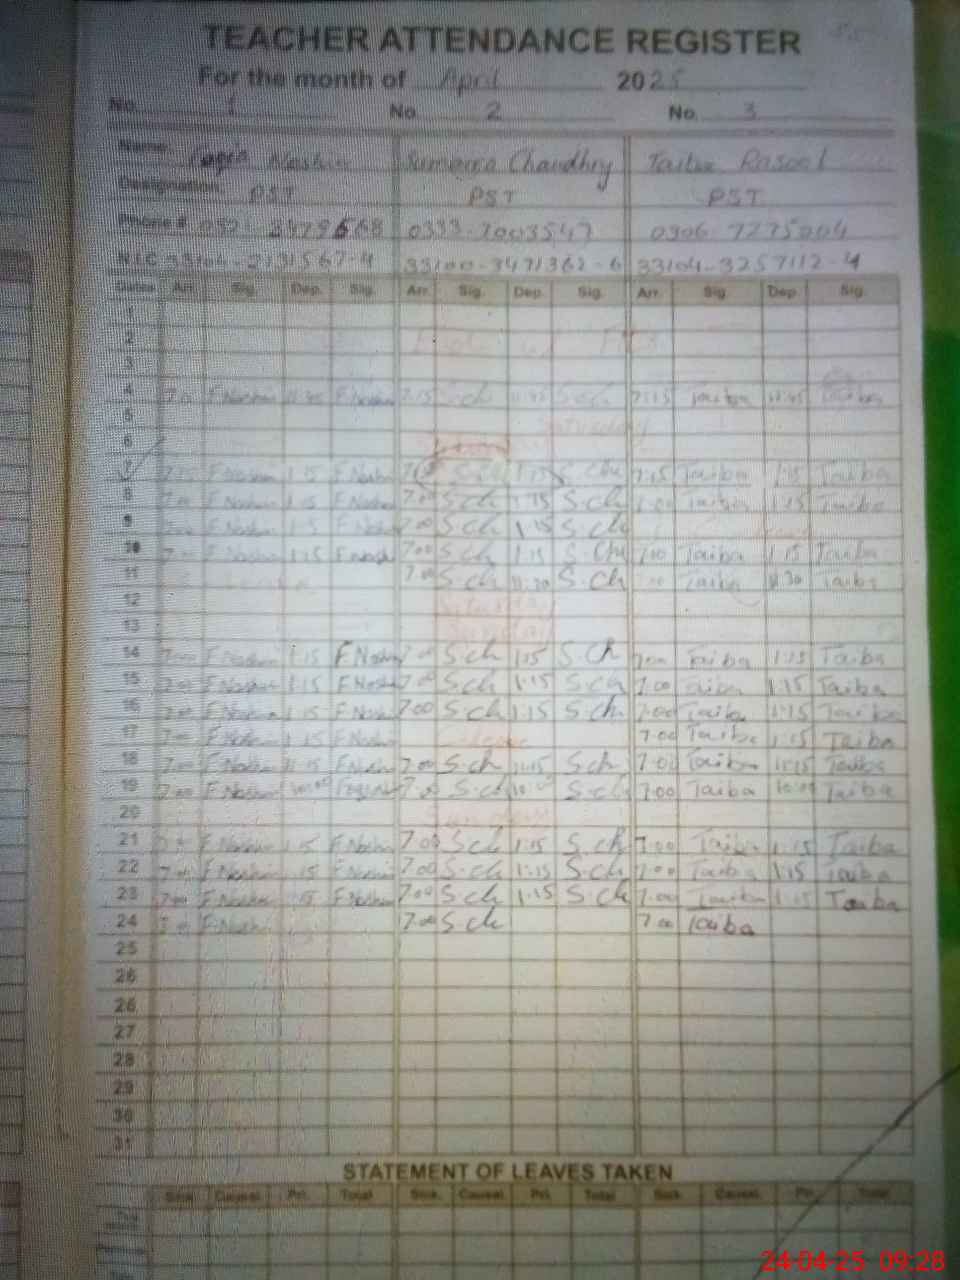 TEACHER ATTENDANCE REGISTER
For the month of April 2025
No. 1 No. 2 No. 3
Name: Noshin Sumaera Chaudhry Taiba Rasool
Designation: PST PST PST
Phone # 0333-7003547 0306-7275004
N.I.C 33100-3471362-6 33104-3257112-4
Dates Arr. Sig. Dep. Sig. Arr. Sig. Dep. Sig. Arr. Sig. Dep. Sig.
1
2
3
4 F.Noshin 11:45 F.Noshin 7:15 S.ch 11:45 S.ch 7:15 Taiba 11:45 Taiba
5 Saturday
6
7 F.Noshin 1:15 F.Noshin S.ch 1:15 S.Ch 7:15 Taiba 1:15 Taiba
8 7:00 F.Noshin 1:15 F.Noshin 7:00 S.ch 1:15 S.ch 7:00 Taiba 1:15 Taiba
9 7:00 F.Noshin 1:15 F.Noshin 7:00 S.ch 1:15 S.ch
10 7:00 F.Noshin 1:15 F.Noshin 7:00 S.ch 1:15 S.Ch 7:00 Taiba 1:15 Taiba
11 7:00 S.ch 11:30 S.ch Taiba 11:30 Taiba
12 Saturday
13 Sunday
14 7:00 F.Noshin 1:15 F.Noshin 7:00 S.ch 1:15 S.ch 7:00 Taiba 1:15 Taiba
15 7:00 F.Noshin 1:15 F.Noshin 7:00 S.ch 1:15 S.ch 7:00 Taiba 1:15 Taiba
16 7:00 F.Noshin 1:15 F.Noshin 7:00 S.ch 1:15 S.ch 7:00 Taiba 1:15 Taiba
17 7:00 F.Noshin 1:15 F.Noshin 7:00 Taiba 1:15 Taiba
18 7:00 F.Noshin 11:15 F.Noshin 7:00 S.ch 11:15 S.ch 7:00 Taiba 11:15 Taiba
19 7:00 F.Noshin 10:00 7:00 S.ch 10:00 S.ch 7:00 Taiba 10:00 Taiba
20 Sunday
21 F.Noshin 1:15 F.Noshin 7:00 S.ch 1:15 S.ch 7:00 Taiba 1:15 Taiba
22 7:00 F.Noshin 1:15 F.Noshin 7:00 S.ch 1:15 S.ch 7:00 Taiba 1:15 Taiba
23 7:00 F.Noshin 1:15 F.Noshin 7:00 S.ch 1:15 S.ch 7:00 Taiba 1:15 Taiba
24 F.Noshin 7:00 S.ch 7:00 Taiba
25
26
26
27
28
29
30
31
STATEMENT OF LEAVES TAKEN
Sick. Causal. Pri. Total Sick. Causal. Pri. Total Sick. Causal. Pri. Total
24-04-25 09:28